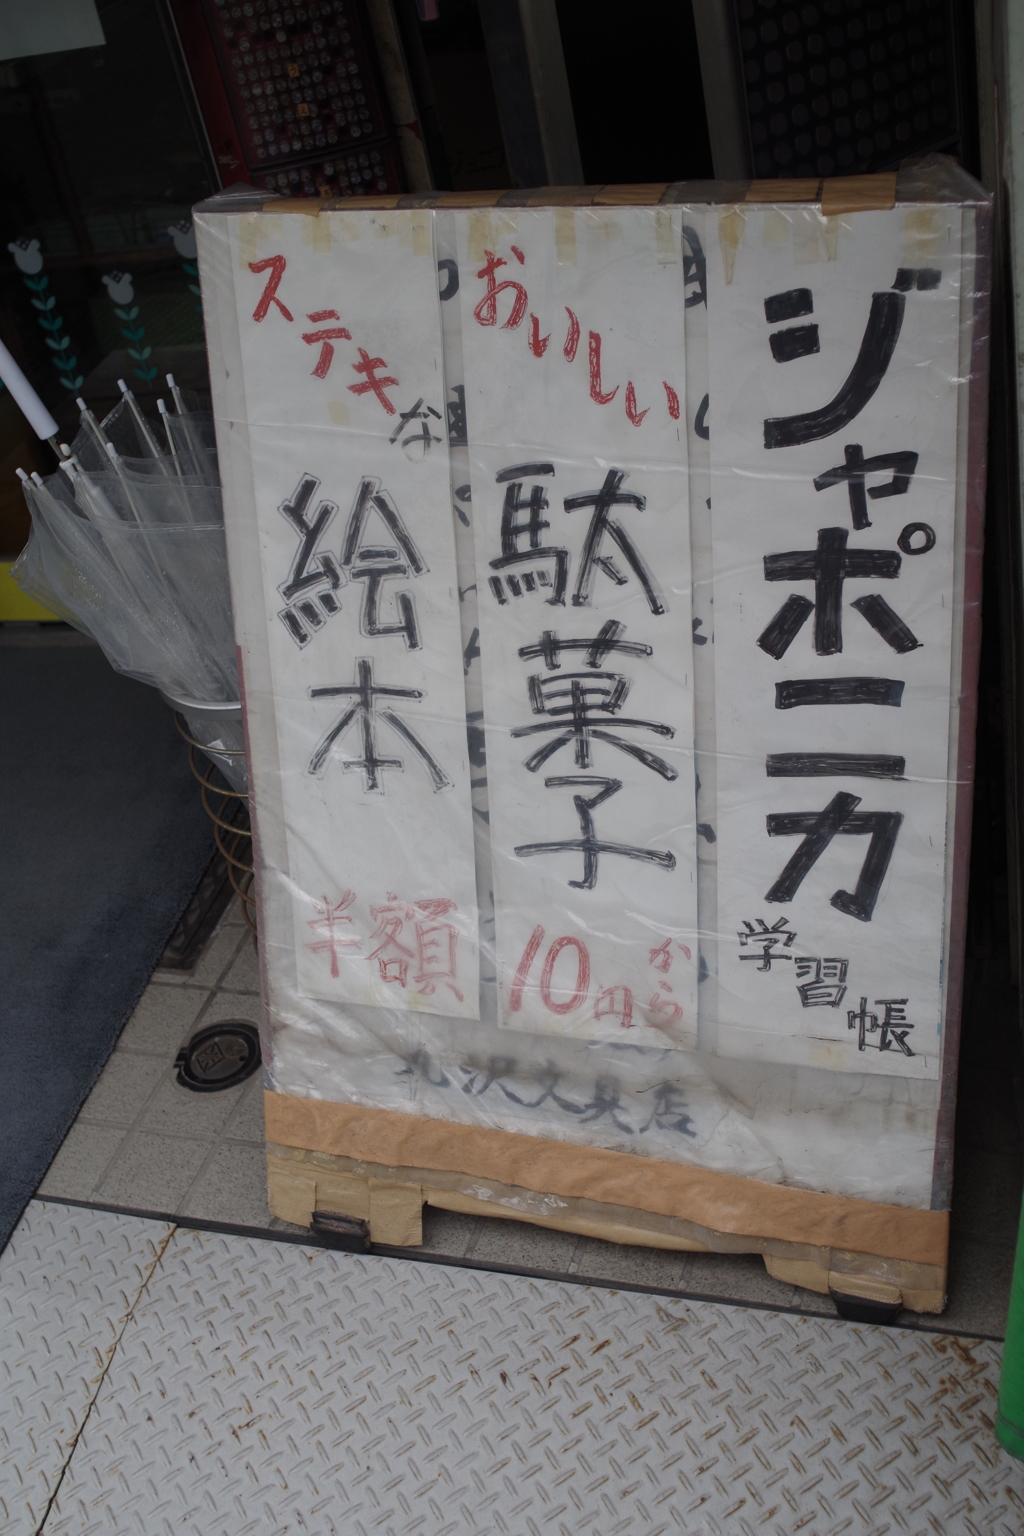 ジャポニカ
学習帳
おいしい
駄菓子
10円から
ステキな
絵本
半額
沢文具店